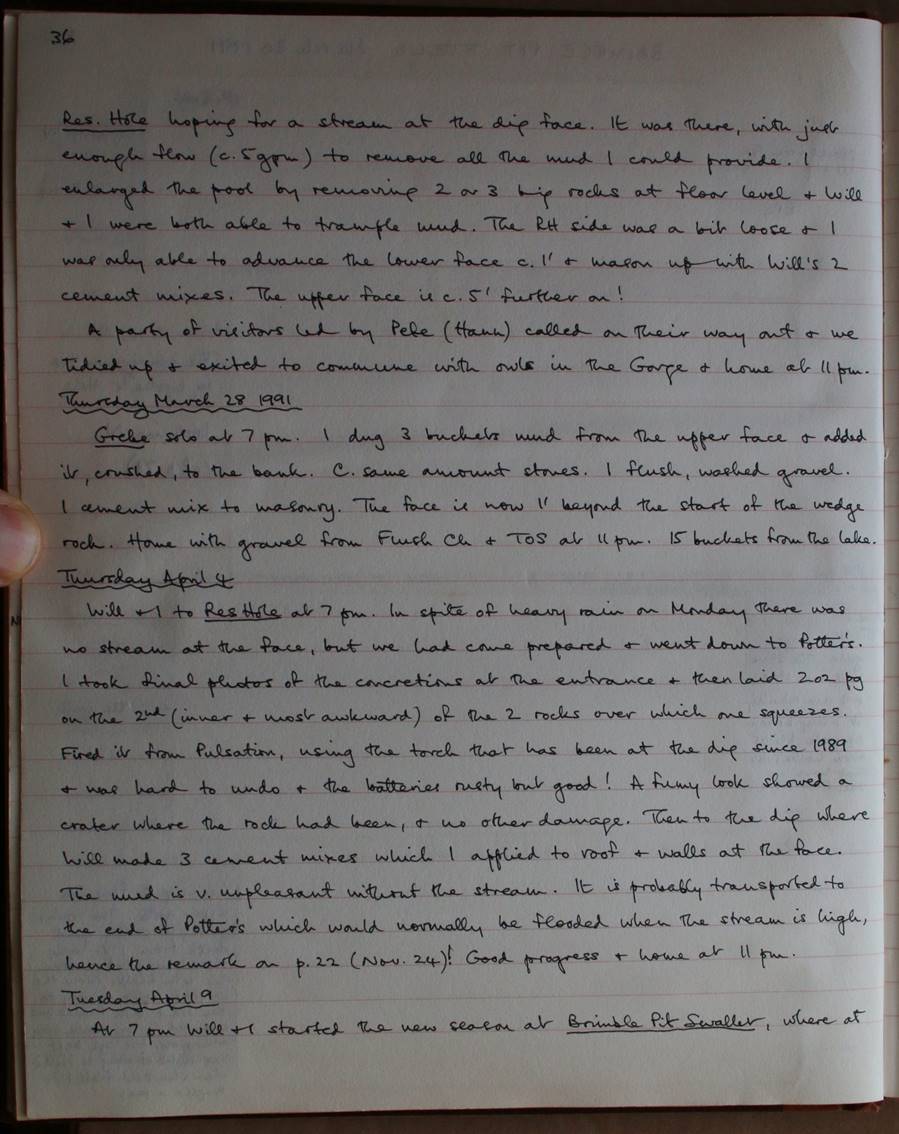 36
Res. Hole hoping for a stream at the dig face. It was there, with just
enough flow (c. 5gpm) to remove all the mud I could provide. I
enlarged the pool by removing 2 or 3 big rocks at floor level + Will
+ I were both able to trample mud. The RH side was a bit loose + I
was only able to advance the lower face c. 1' + mason up with Will's 2
cement mixes. The upper face is c. 5' further on!
A party of visitors led by Pete (Hann) called on their way out + we
tidied up + exited to commune with owls in the Gorge + home at 11 pm.
Thursday March 28 1991
Grebe solo at 7 pm. I dug 3 buckets mud from the upper face + added
it, crushed, to the bank. C. same amount stones. 1 flush, washed gravel.
1 cement mix to masonry. The face is now 11" beyond the start of the wedge
rock. Home with gravel from Flush Ch + TOS at 11 pm. 15 buckets from the lake.
Thursday April 4
Will + I to Res Hole at 7 pm. In spite of heavy rain on Monday there was
no stream at the face, but we had come prepared + went down to Potter's.
I took final photos of the concretions at the entrance + then laid 2oz pg
on the 2nd (inner + most awkward) of the 2 rocks over which one squeezes.
Fired it from Pulsation, using the torch that has been at the dig since 1989
+ was hard to undo + the batteries rusty but good! A fumy look showed a
crater where the rock had been, + no other damage. Then to the dig where
Will made 3 cement mixes which I applied to roof + walls at the face.
The mud is v. unpleasant without the stream. It is probably transported to
the end of Potter's which would normally be flooded when the stream is high,
hence the remark on p.22 (Nov. 24)! Good progress + home at 11 pm.
Tuesday April 9
At 7 pm Will + I started the new season at Brimble Pit Swallet, where at